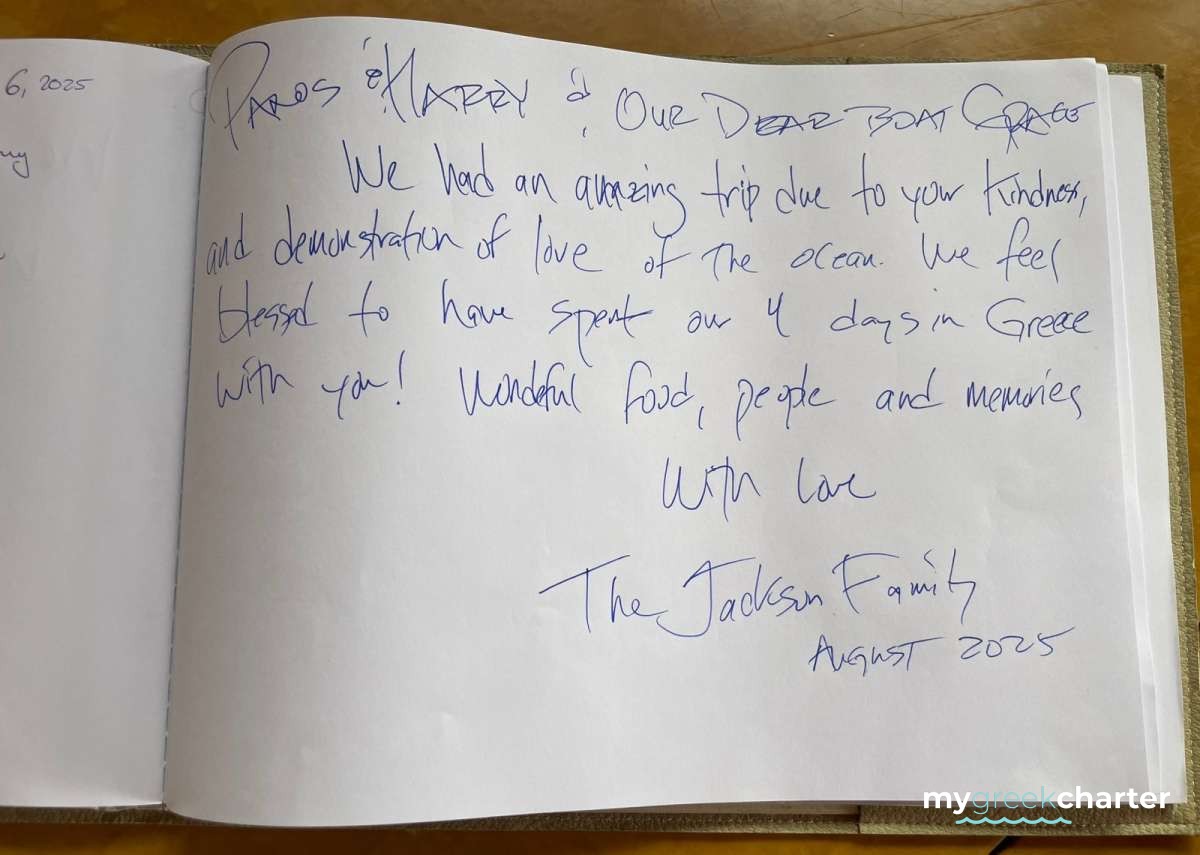 6, 2025
PAROS & HARRY & OUR DEAR BOAT GRACE
We had an amazing trip due to your kindness,
and demonstration of love of the ocean. We feel
blessed to have spent our 4 days in Greece
with you! Wondeful food, people and memories
With love
The Jackson Family
AUGUST 2025
mygreekcharter